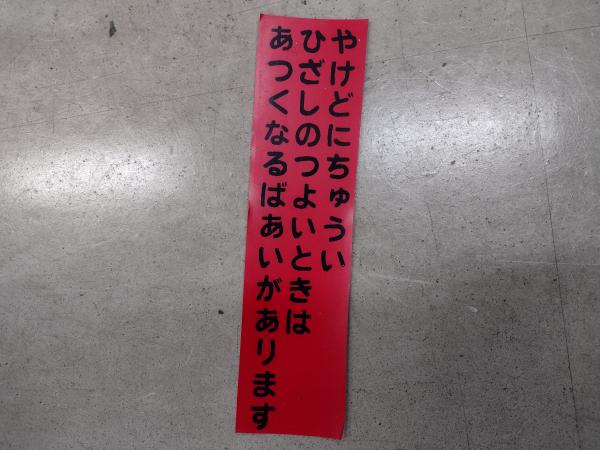 やけどにちゅうい
ひざしのつよいときは
あつくなるばあいがあります